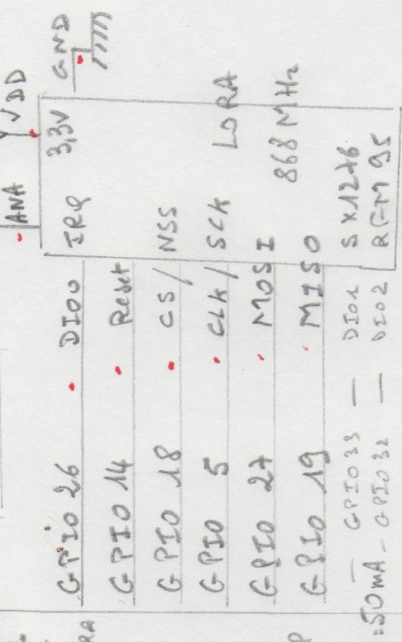 ANA VDD GND
GPIO 26 DIO0 IRQ 3,3V
GPIO 14 Reset
GPIO 18 CS/ NSS
GPIO 5 CLK/ SCK LORA
GPIO 27 MOSI 868 MHz
GPIO 19 MISO
GPIO33 — DIO1 SX1276
50mA - GPIO32 — DIO2 RFM95
RA
P